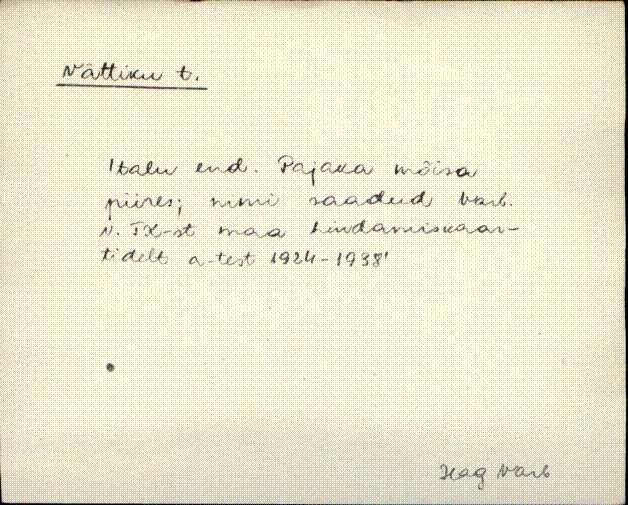 Nättiku t.
'talu end. Pajaka mõisa
piires; nimi saadud Varb.
v. TX-st maa hindamiskaar-
tidelt a-test 1924-1938'
Hag Varb